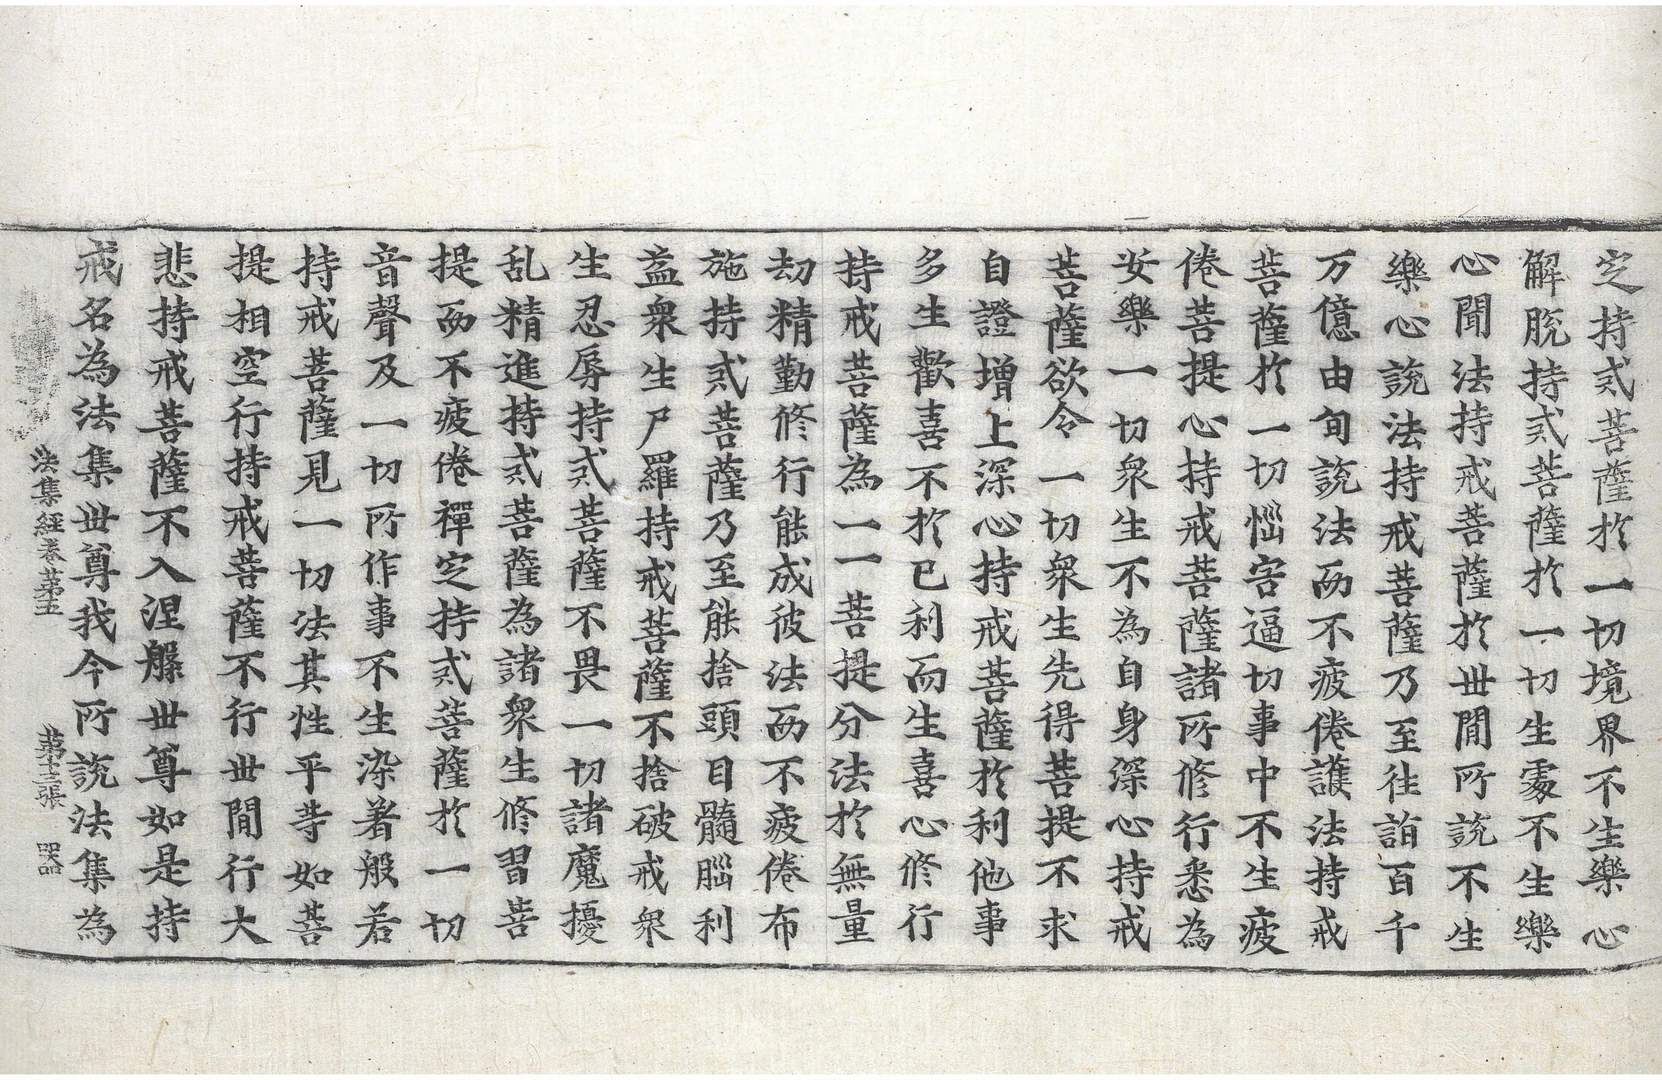 㝎持戒菩薩於一切境界不生樂心
解脫持戒菩薩於一切生處不生樂
心聞法持戒菩薩於世間所說不生
樂心說法持戒菩薩乃至往詣百千
万億由旬說法而不疲倦護法持戒
菩薩於一切惱害逼切事中不生疲
倦菩提心持戒菩薩諸所修行悉為
安樂一切衆生不為自身深心持戒
菩薩欲令一切衆生先得菩提不求
自證增上深心持戒菩薩於利他事
多生歡喜不於已利而生喜心修行
持戒菩薩為一一菩提分法於無量
劫精勤修行能成彼法而不疲倦布
施持戒菩薩乃至能捨頭目髓腦利
益衆生尸羅持戒菩薩不捨破戒衆
生忍辱持戒菩薩不畏一切諸魔擾
乱精進持戒菩薩為諸衆生修習菩
提而不疲倦禪㝎持戒菩薩於一切
音聲及一切所作事不生染著般若
持戒菩薩見一切法其性平等如菩
提相空行持戒菩薩不行世間行大
悲持戒菩薩不入涅槃世尊如是持
戒名為法集世尊我今所說法集為
法集經卷第五 第十三張 器